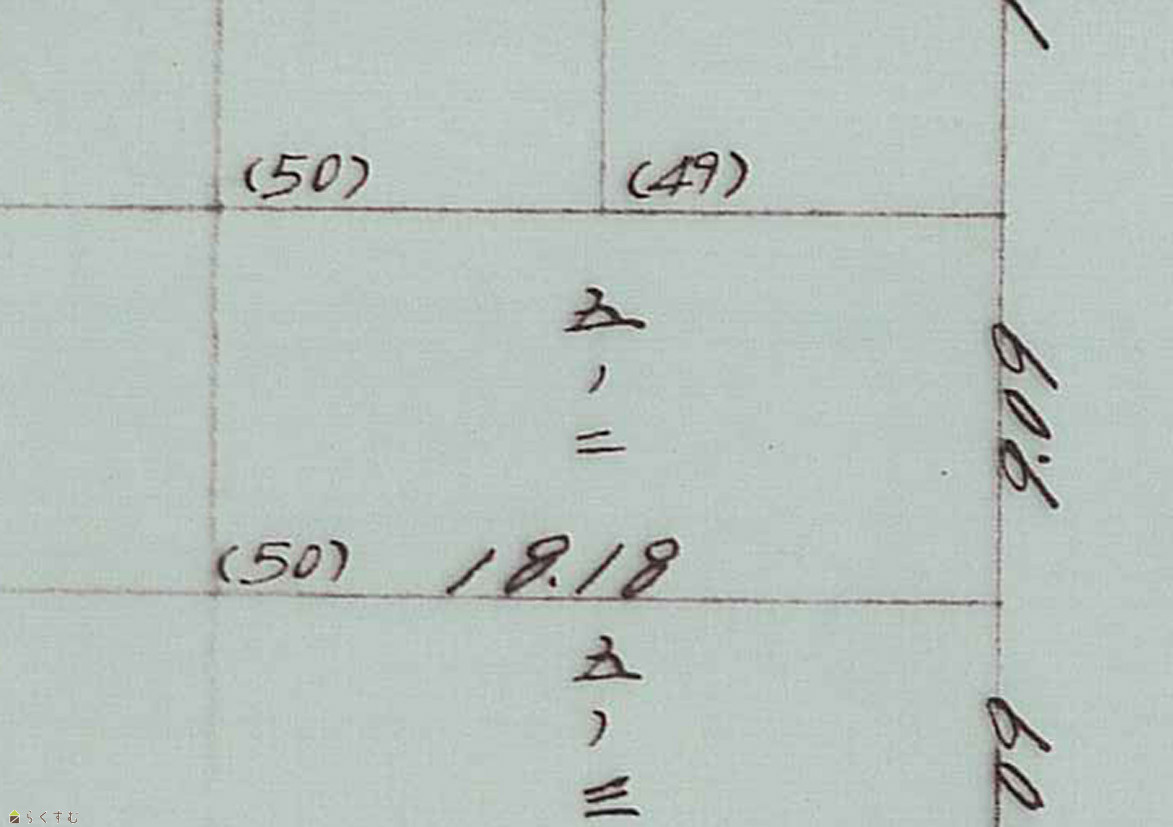 (50)
(49)
五、二
9.09
(50)
18.18
五、三
09
らくすむ